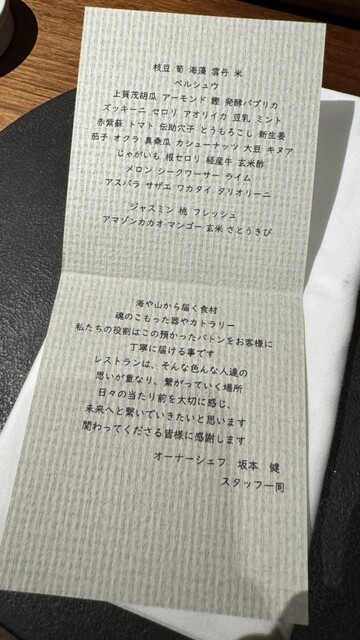 枝豆 筍 海藻 雲丹 米
ペルシュウ
上賀茂胡瓜 アーモンド 鰹 発酵パプリカ
ズッキーニ セロリ アオリイカ 豆乳 ミント
赤紫蘇 トマト 伝助穴子 とうもろこし 新生姜
茄子 オクラ 真桑瓜 カシューナッツ 大豆 キヌア
じゃがいも 根セロリ 経産牛 玄米酢
メロン シークワーサー ライム
アスパラ サザエ ワカタイ タリオリーニ
ジャスミン 桃 フレッシュ
アマゾンカカオ マンゴー 玄米 さとうきび
海や山から届く食材
魂のこもった器やカトラリー
私たちの役割はこの預かったバトンをお客様に
丁寧に届ける事です
レストランは、そんな色んな人達の
思いが重なり、繋がっていく場所
日々の当たり前を大切に感じ、
未来へと繋いでいきたいと思います
関わってくださる皆様に感謝します
オーナーシェフ 坂本 健
スタッフ一同